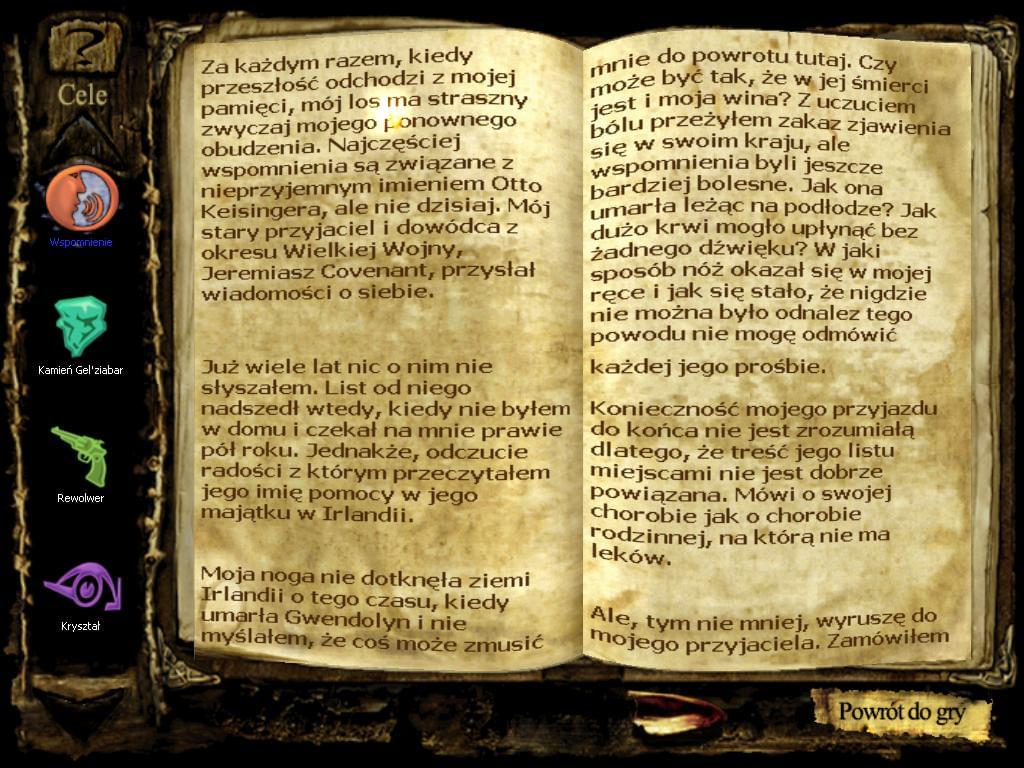 Cele
Wspomnienie
Kamień Gel'ziabar
Rewolwer
Kryształ
Za każdym razem, kiedy
przeszłość odchodzi z mojej
pamięci, mój los ma straszny
zwyczaj mojego ponownego
obudzenia. Najczęściej
wspomnienia są związane z
nieprzyjemnym imieniem Otto
Keisingera, ale nie dzisiaj. Mój
stary przyjaciel i dowódca z
okresu Wielkiej Wojny,
Jeremiasz Covenant, przysłał
wiadomości o siebie.
Już wiele lat nic o nim nie
słyszałem. List od niego
nadszedł wtedy, kiedy nie byłem
w domu i czekał na mnie prawie
pół roku. Jednakże, odczucie
radości z którym przeczytałem
jego imię pomocy w jego
majątku w Irlandii.
Moja noga nie dotknęła ziemi
Irlandii o tego czasu, kiedy
umarła Gwendolyn i nie
myślałem, że coś może zmusić
mnie do powrotu tutaj. Czy
może być tak, że w jej śmierci
jest i moja wina? Z uczuciem
bólu przeżyłem zakaz zjawienia
się w swoim kraju, ale
wspomnienia byli jeszcze
bardziej bolesne. Jak ona
umarła leżąc na podłodze? Jak
dużo krwi mogło upłynąć bez
żadnego dźwięku? W jaki
sposób nóż okazał się w mojej
ręce i jak się stało, że nigdzie
nie można było odnalez tego
powodu nie mogę odmówić
każdej jego prośbie.
Konieczność mojego przyjazdu
do końca nie jest zrozumiałą
dlatego, że treść jego listu
miejscami nie jest dobrze
powiązana. Mówi o swojej
chorobie jak o chorobie
rodzinnej, na którą nie ma
leków.
Ale, tym nie mniej, wyruszę do
mojego przyjaciela. Zamówiłem
Powrót do gry